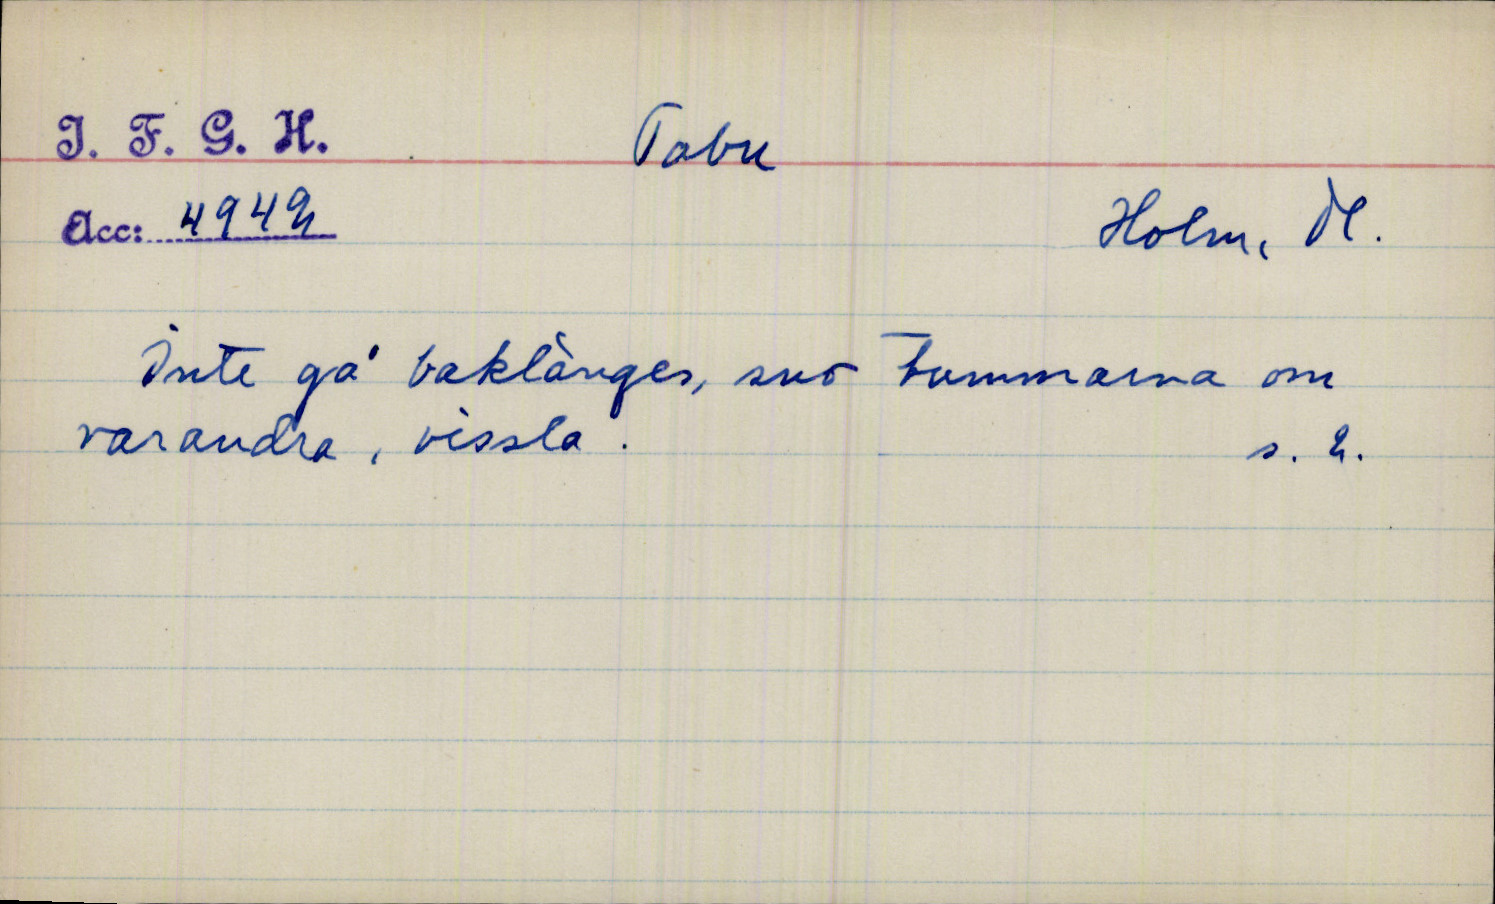 I. F. G. H.
Tabu
Acc: 4942
Holm, Hl.
Inte gå baklänges, sno tummarna om
varandra, vissla.
s. 2.